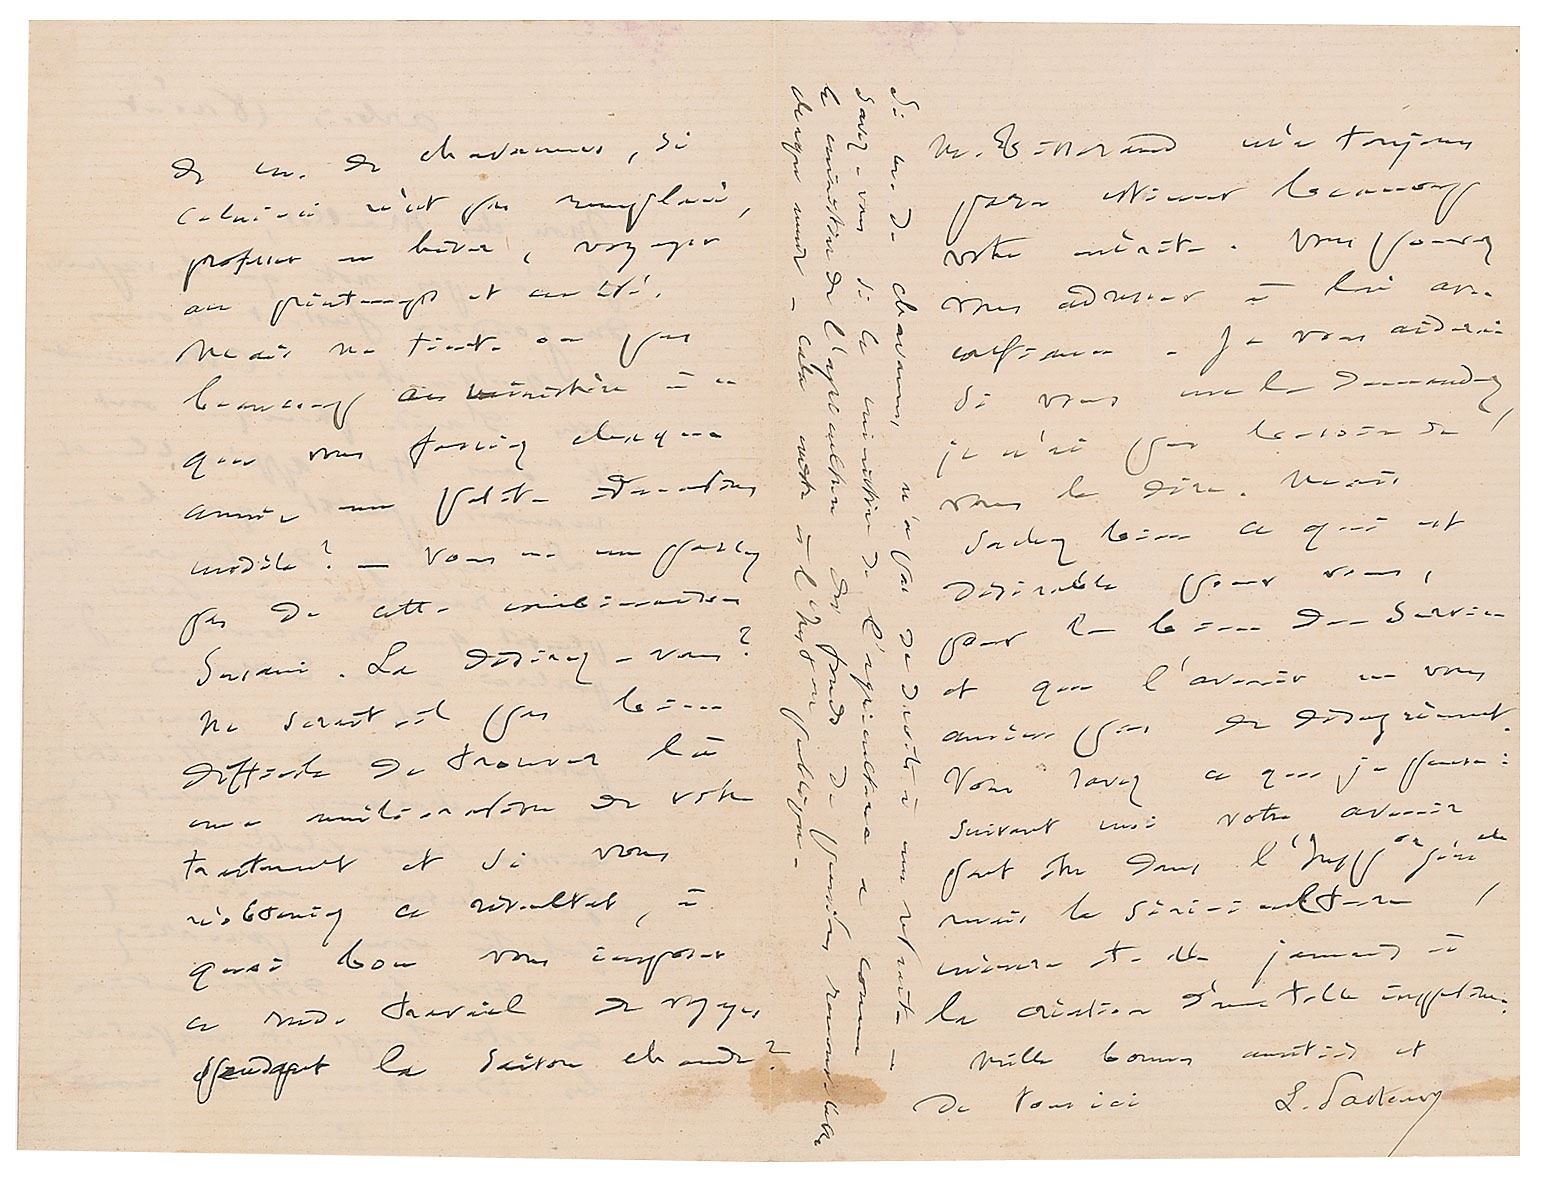 de M. de Chavannes, si
celui-ci n'est pas remplacé,
professer en hiver, voyager
au printemps et en été.
Mais ne tient-on pas
beaucoup au ministère à ce
que vous fassiez chaque
année une petite éducation
modèle? — Vous ne me parlez
pas de cette combinaison
Susani. La désirez-vous?
Ne serait-il pas bien
difficile de trouver là
une amélioration de votre
traitement et si vous
n'obteniez ce résultat, à
quoi bon vous imposer
ce rude travail de voyages
pendant la saison chaude?
M. Tisserand m'a toujours
paru estimer beaucoup
votre mérite. Vous pouvez
vous adresser à lui avec
confiance. Je vous aiderai
si vous me le demandez,
je n'ai pas besoin de
vous le dire. Mais
sachez bien ce qui est
désirable pour vous,
pour le bien du service
et que l'avenir ne vous
amène pas de désagrément.
Vous savez ce que je pense:
suivant moi votre avenir
peut être dans l'Insp^on gén^ale
mais la sériciculture
mènera-t-elle jamais à
la création d'une telle inspection.
Mille bonnes amitiés et
de tous ici L. Pasteur
Si M. de Chavannes n'a pas de droits à une retraite —
Savez-vous si le ministère de l'agriculture a comme
le ministère de l'agriculture des fonds de pensions renouvelables
chaque année — cela existe à l'Inst^on publique —